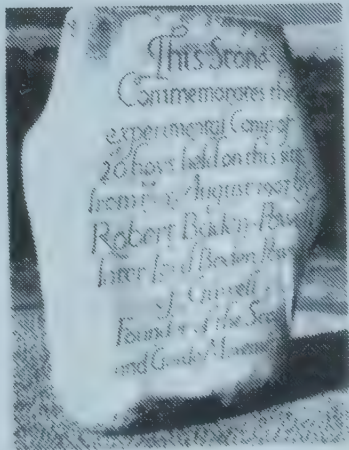 This Stone
Commemorates the
experimental Camp of
20 boys held on this site
from August 1907 by
Robert Baden-Powell
later Lord Baden-Powell
of Gilwell
Founder of the Scout
and Guide Movements